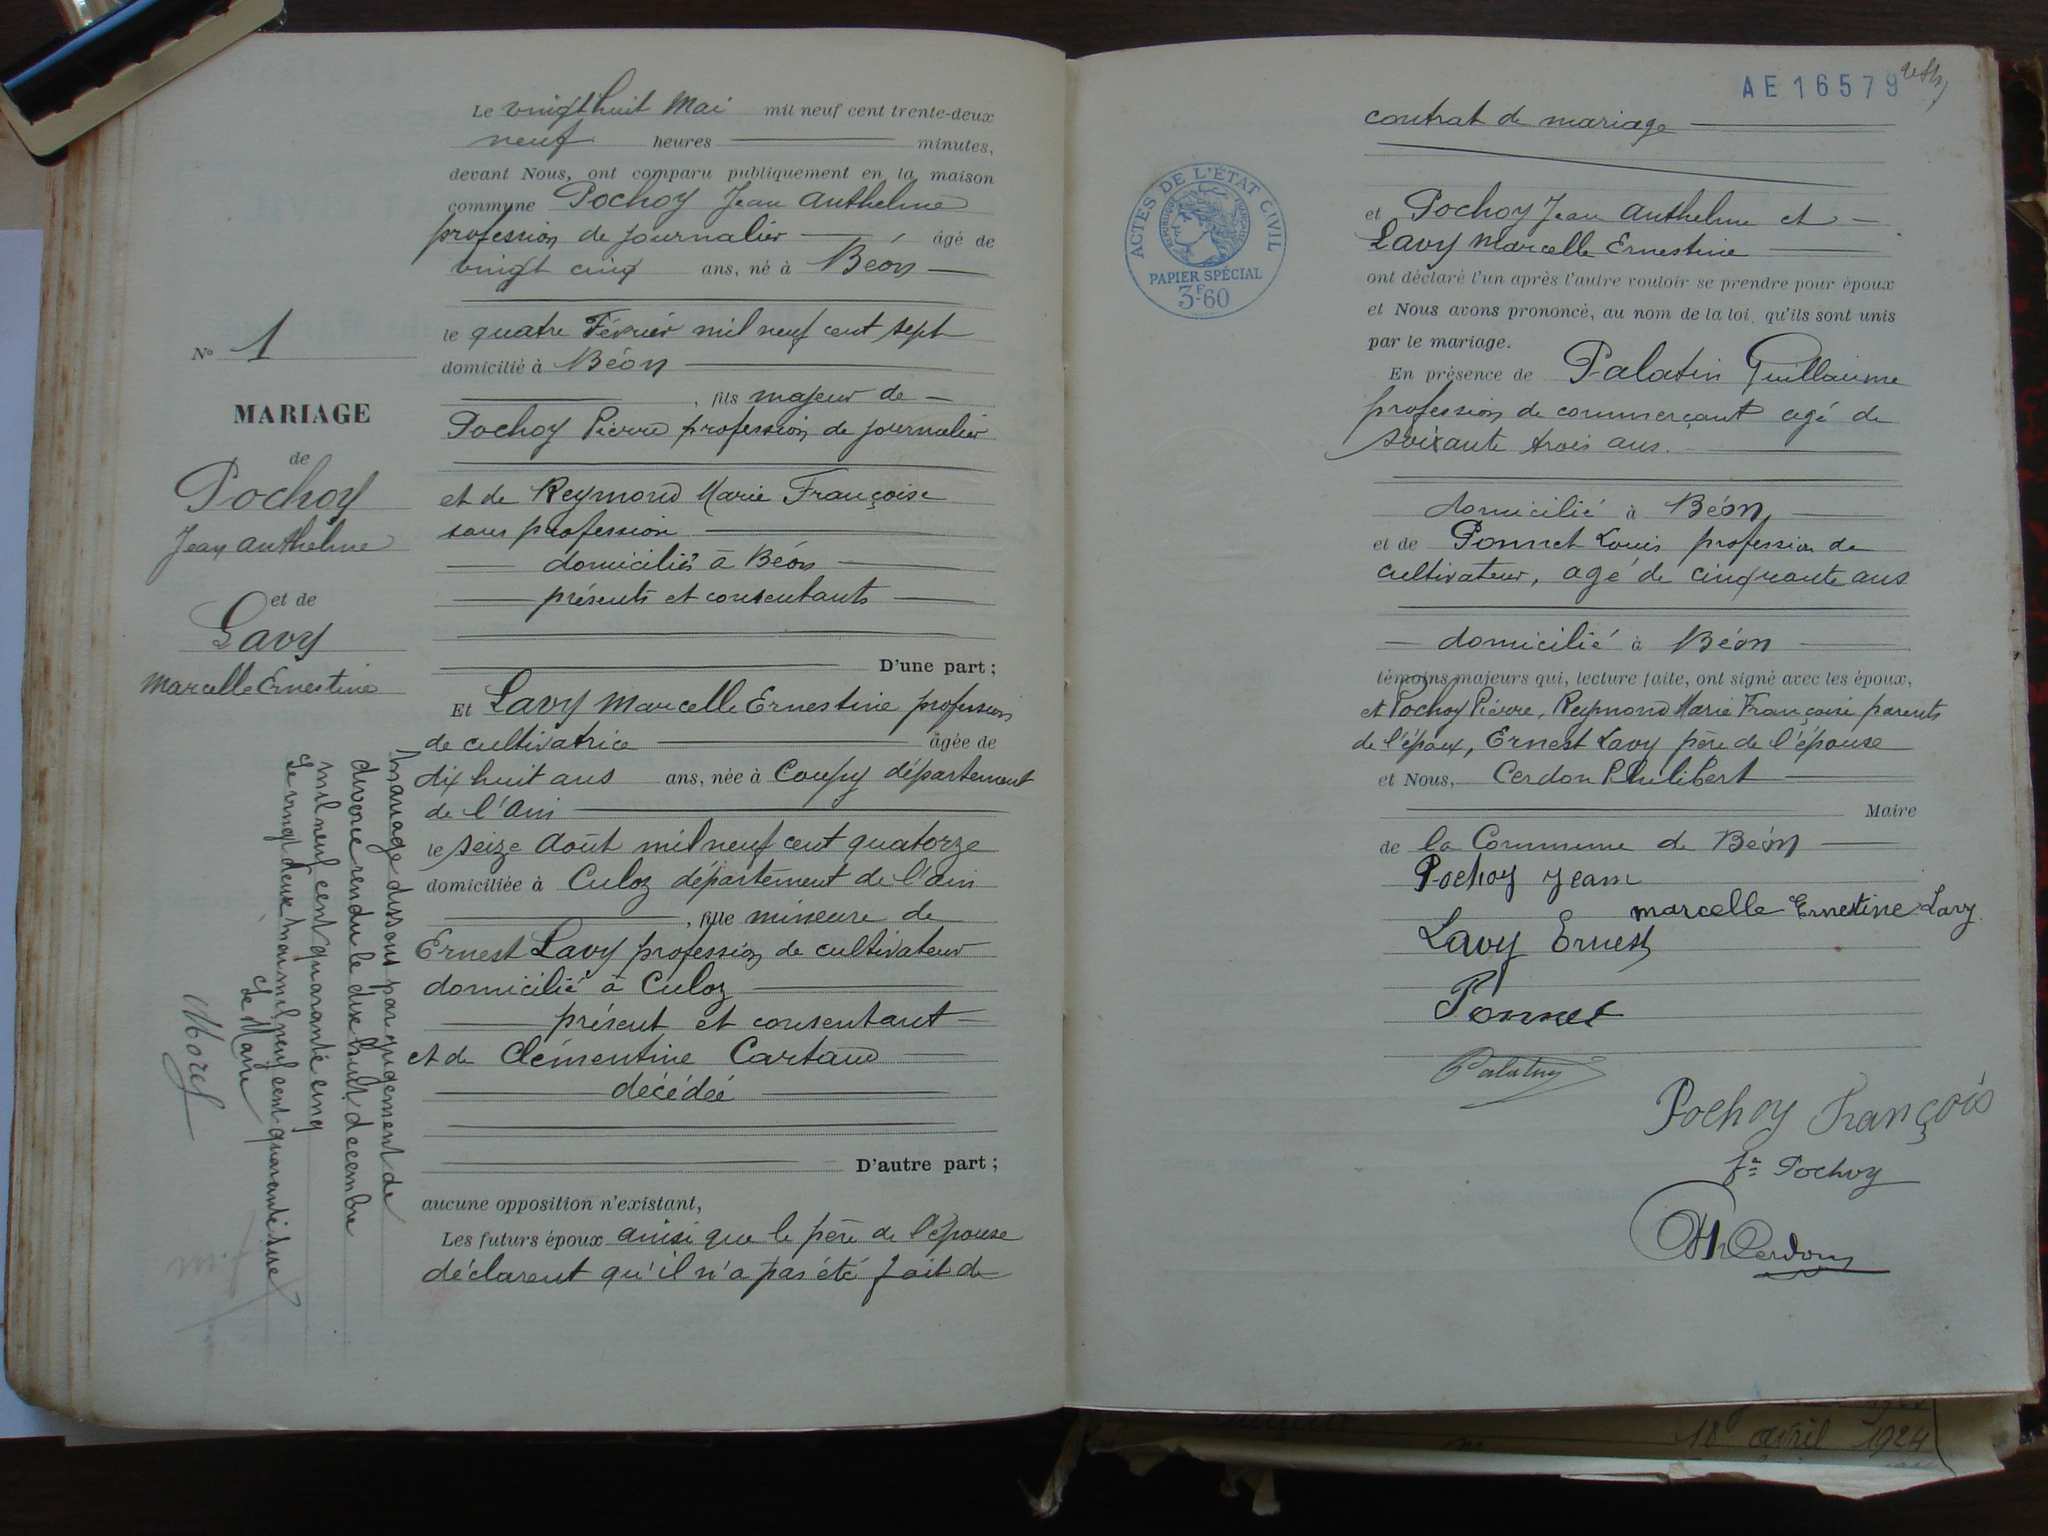 Le vingt huit Mai mil neuf cent trente-deux
neuf heures minutes,
devant Nous, ont comparu publiquement en la maison
commune Pochoy Jean Anthelme
profession de journalier âgé de
vingt cinq ans, né à Béon
le quatre Février mil neuf cent sept
domicilié à Béon
, fils majeur de
Pochoy Pierre profession de journalier
et de Reymond Marie Françoise
sans profession
domiciliés à Béon
présents et consentants
D'une part ;
Et Lavy Marcelle Ernestine profession
de cultivatrice âgée de
dix huit ans ans, née à Coupy département
de l'Ain
le seize Août mil neuf cent quatorze
domiciliée à Culoz département de l'Ain
, fille mineure de
Ernest Lavy profession de cultivateur
domicilié à Culoz
présent et consentant
et de Clémentine Cartaud
décédée
D'autre part ;
aucune opposition n'existant,
Les futurs époux ainsi que le père de l'épouse
déclarent qu'il n'a pas été fait de
No 1
MARIAGE
de
Pochoy
Jean Anthelme
et de
Lavy
Marcelle Ernestine
Mariage dissout par jugement de
divorce rendu le dix huit décembre
mil neuf cent quarante cinq
Le vingt deux mai mil neuf cent quarante
Le Maire
Morel
AE 16579
contrat de mariage
ACTES DE L'ÉTAT CIVIL
RÉPUBLIQUE FRANÇAISE
PAPIER SPÉCIAL
3F.60
et Pochoy Jean Anthelme et
Lavy Marcelle Ernestine
ont déclaré l'un après l'autre vouloir se prendre pour époux
et Nous avons prononcé, au nom de la loi, qu'ils sont unis
par le mariage.
En présence de Palatin Guillaume
profession de commerçant agé de
soixante trois ans.
domicilié à Béon
et de Ponnet Louis profession de
cultivateur, agé de cinquante ans
domicilié à Béon
témoins majeurs qui, lecture faite, ont signé avec les époux,
et Pochoy Pierre, Reymond Marie Françoise parents
de l'époux, Ernest Lavy père de l'épouse
et Nous, Cerdon Philibert
Maire
de la Commune de Béon
Pochoy Jean
marcelle Ernestine Lavy
Lavy Ernest
Ponnet
Palatin
Pochoy François
fe Pochoy
Ph Cerdon
18 avril 1924